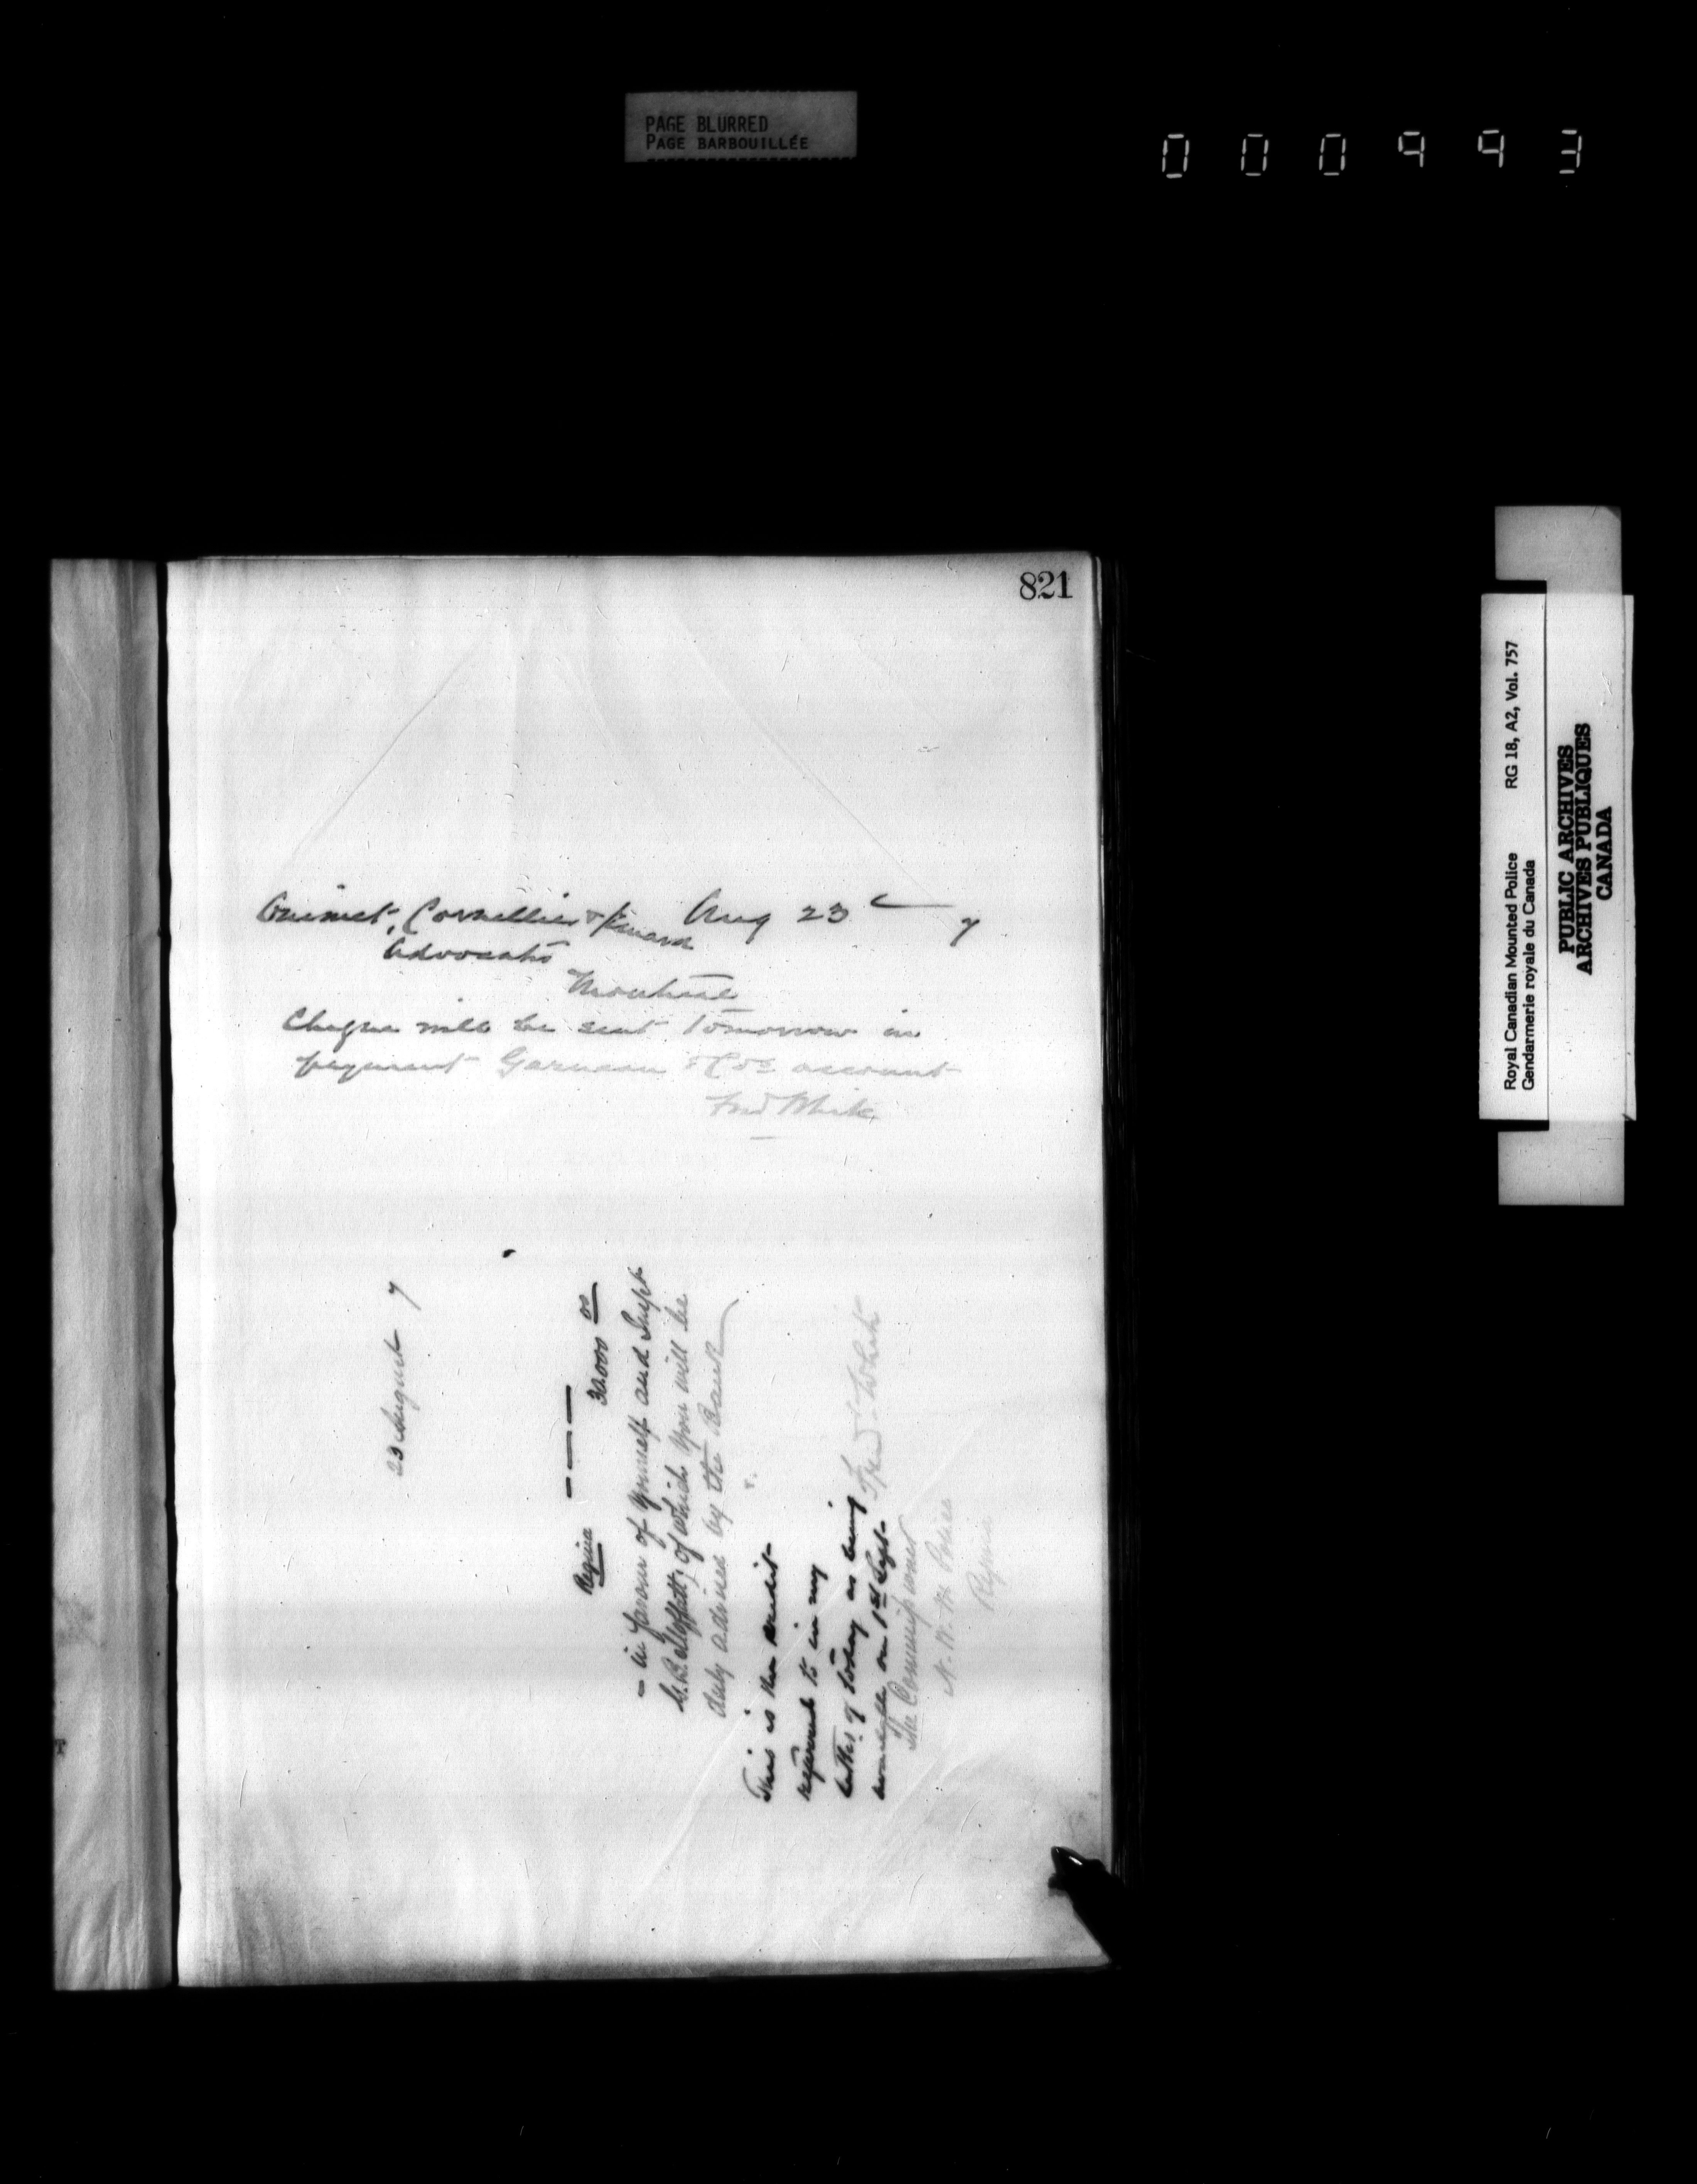 PAGE BLURRED
PAGE BARBOUILLÉE
000994
821
Ouimet, Cornellier & Aug 23 7
Advocates
Montreal
Cheque will be sent tomorrow in
payment Garneau & Cos account
Fred White
23 August 7
Regina 30.000 00
- in favour of yourself and Supt
Moffatt, of which you will be
duly advised by the Bank
This is the credit
referred to in my
letter of today as being
available on 1st Sept-
Fred White
The Commissioner
N. W. M. Police
Regina
Royal Canadian Mounted Police RG 18, A2, Vol. 757
Gendarmerie royale du Canada
PUBLIC ARCHIVES
ARCHIVES PUBLIQUES
CANADA